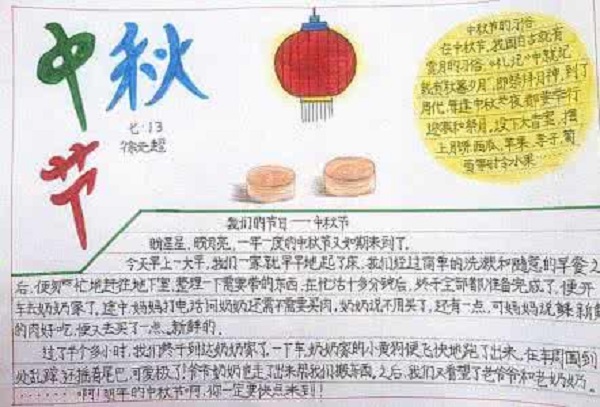 中秋节
七·13
徐元超
中秋节的习俗
在中秋节,我国自古就有
赏月的习俗,《礼记》中就记
载有秋暮夕月,即祭拜月神,到了
周代,每逢中秋之夜都要举行
迎寒和祭月。设下大香案,摆
上月饼、西瓜、苹果、李子、葡
萄等时令水果
我们的节日——中秋节
盼星星,盼月亮,一年一度的中秋节又如期来到了。
今天早上一大早,我们一家就早早地起了床,我们经过简单的洗漱和随意的早餐之
后,便匆忙地赶往地下室,整理一下需要带的东西,在忙活十多分钟后,终于全部都准备完成了,便开
车去奶奶家了。途中妈妈打电话问奶奶还需不需要买肉,奶奶说不用买了,还有一点,可妈妈说新鲜
的肉好吃,便又去买了一点新鲜的。
过了半个多小时,我们终于到达奶奶家了。一下车,奶奶家的小黄狗便飞快地跑了出来,在车周围到
处乱蹿,还摇着尾巴,可爱极了!爷爷奶奶也走了出来帮我们搬东西。之后,我们又看望了老爷爷和老奶奶。
……啊!明年的中秋节啊,你一定要快点来到!